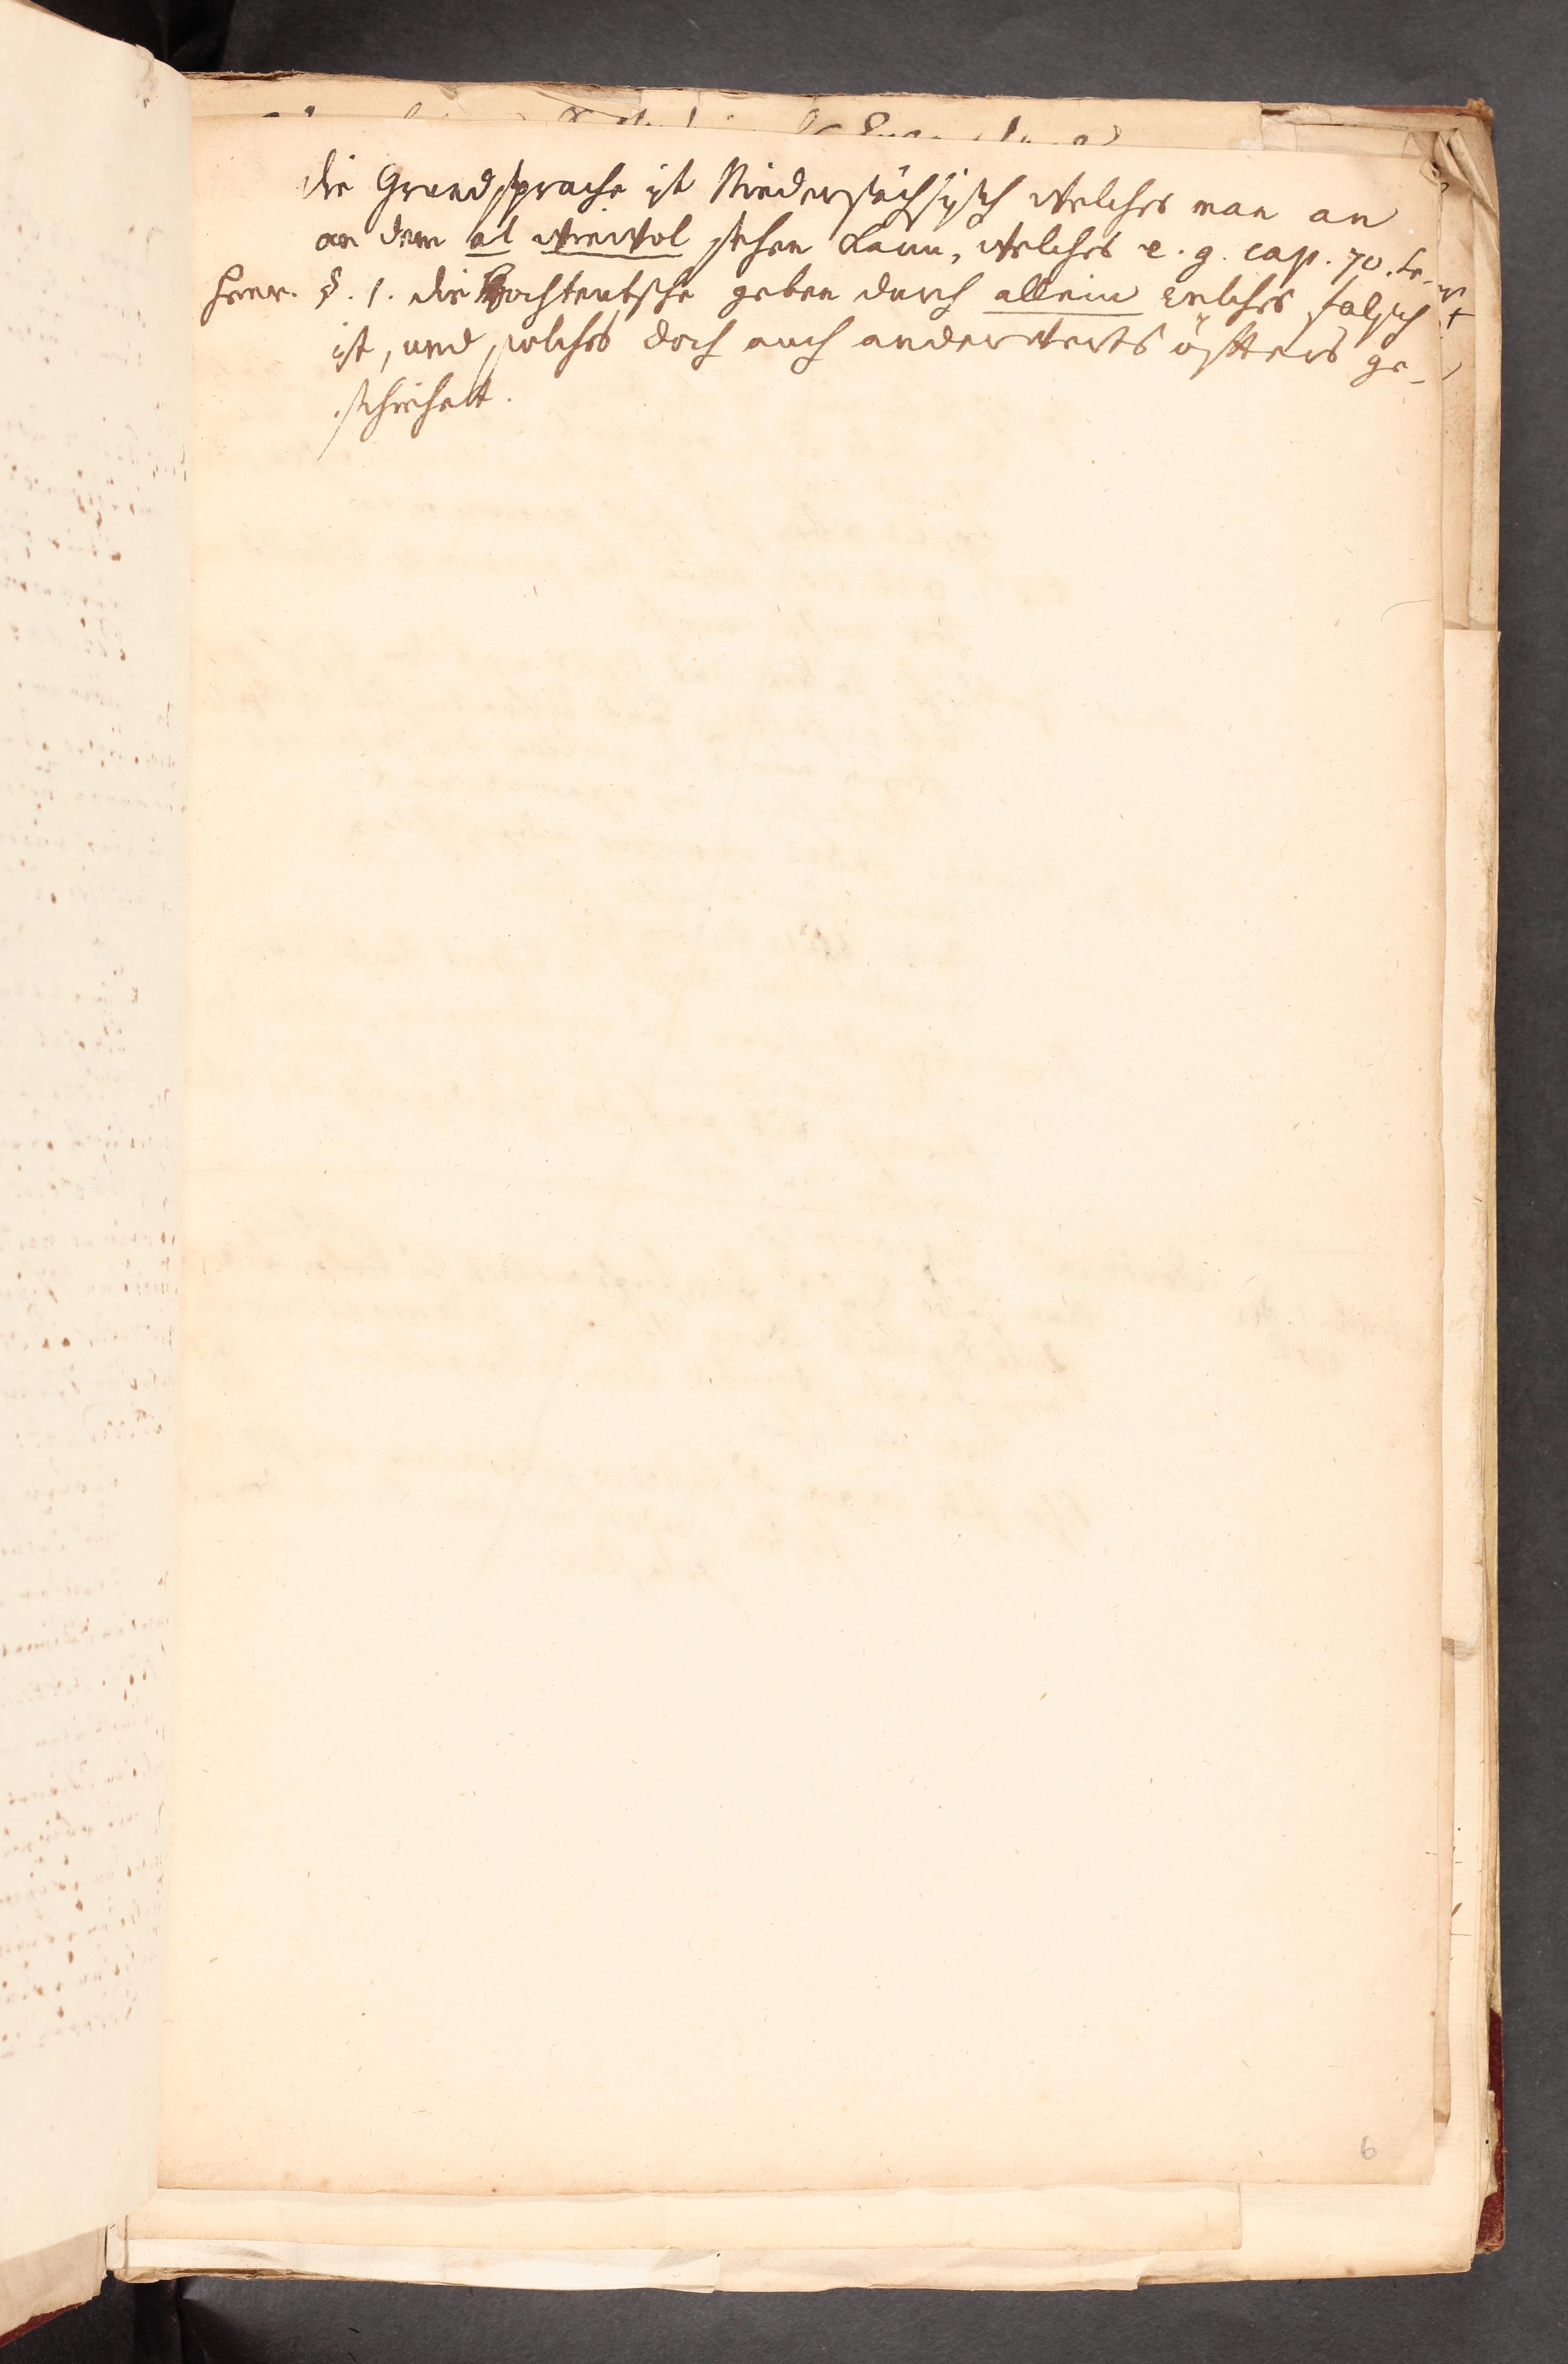 die Grundsprache ist Niedersächsisch welches man an
an dem al wiewol sehen kann, welches e. g. cap. 70.
§. 1. die Hochteutsche geben durch allein welches falsch
ist, und solches doch auch anderwerts öffters ge-
schiehett.
6